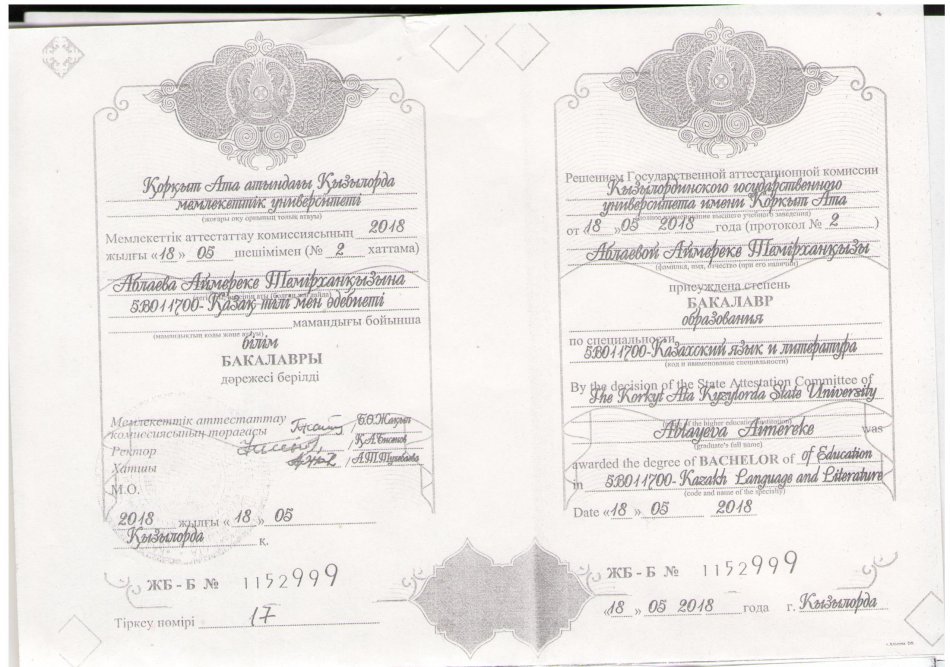 Қорқыт Ата атындағы Қызылорда
мемлекеттік университеті
(жоғары оқу орнының толық атауы)
Мемлекеттік аттестаттау комиссиясының 2018
жылғы «18» 05 шешімімен (№ 2 хаттама)
Аблаева Аймереке Темірханқызына
5В011700-Қазақ тілі мен әдебиеті
мамандығы бойынша
(мамандықтың коды және атауы)
білім
БАКАЛАВРЫ
дәрежесі берілді
Мемлекеттік аттестаттау
комиссиясының төрағасы
Ректор
Хатшы
М.О.
2018 жылғы «18» 05
Қызылорда қ.
ЖБ - Б № 1152999
Тіркеу нөмірі 17
Решением Государственной аттестационной комиссии
Кызылординского государственного
университета имени Коркыт Ата
от «18» 05 2018 года (протокол № 2)
Аблаевой Аймереке Темірханқызы
(фамилия, имя, отчество (при его наличии)
присуждена степень
БАКАЛАВР
образования
по специальности
5В011700-Казахский язык и литература
(код и наименование специальности)
By the decision of the State Attestation Committee of
The Korkyt Ata Kyzylorda State University
Ablayeva Aimereke was
(graduate's full name)
awarded the degree of BACHELOR of of Education
in 5B011700- Kazakh Language and Literature
(code and name of the specialty)
Date «18» 05 2018
ЖБ - Б № 1152999
«18» 05 2018 года г. Кызылорда